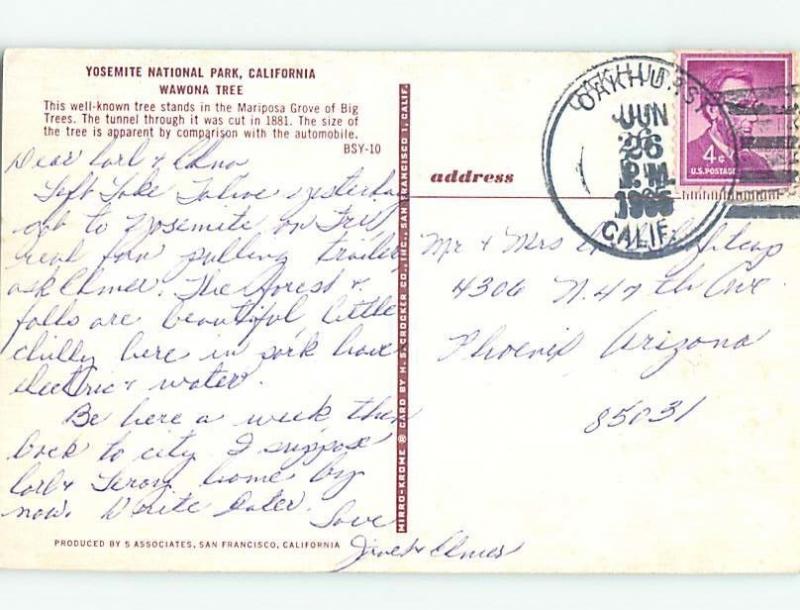 YOSEMITE NATIONAL PARK, CALIFORNIA
WAWONA TREE
This well-known tree stands in the Mariposa Grove of Big
Trees. The tunnel through it was cut in 1881. The size of
the tree is apparent by comparison with the automobile.
BSY-10
Dear Carl &
Left Lake Tahoe yesterday
got to Yosemite on Fri,
real fun pulling trailer
ask Elmer. The forest &
falls are beautiful, little
chilly here in park have
electric & water.
Be here a week then
back to city. I suppose
Carl & Leroy home by
now. Write later.
Love
Janet & Elmer
PRODUCED BY S ASSOCIATES, SAN FRANCISCO, CALIFORNIA
MIRRO-KROME ® CARD BY H. S. CROCKER CO., INC., SAN FRANCISCO 1, CALIF.
address
OAKHURST
JUN
26
P.M
1965
CALIF.
4¢
U.S. POSTAGE
Mr & Mrs
4306 N. 47th Ave
Phoenix Arizona
85031